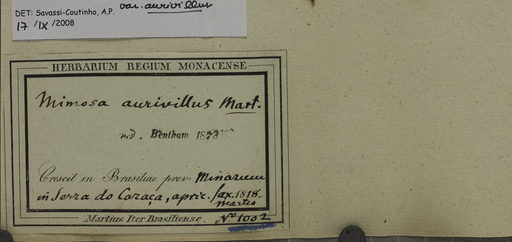 var. aurivillus
DET: Savassi-Coutinho, A.P.
17 /IX /2008
HERBARIUM REGIUM MONACENSE
Mimosa aurivillus Mart.
vid. Bentham 1873
Crescit in Brasiliae prov. Minarum
in Serra do Caraça, apric. sax. 1818.
Martio
Martius Iter Brasiliense. No 1002